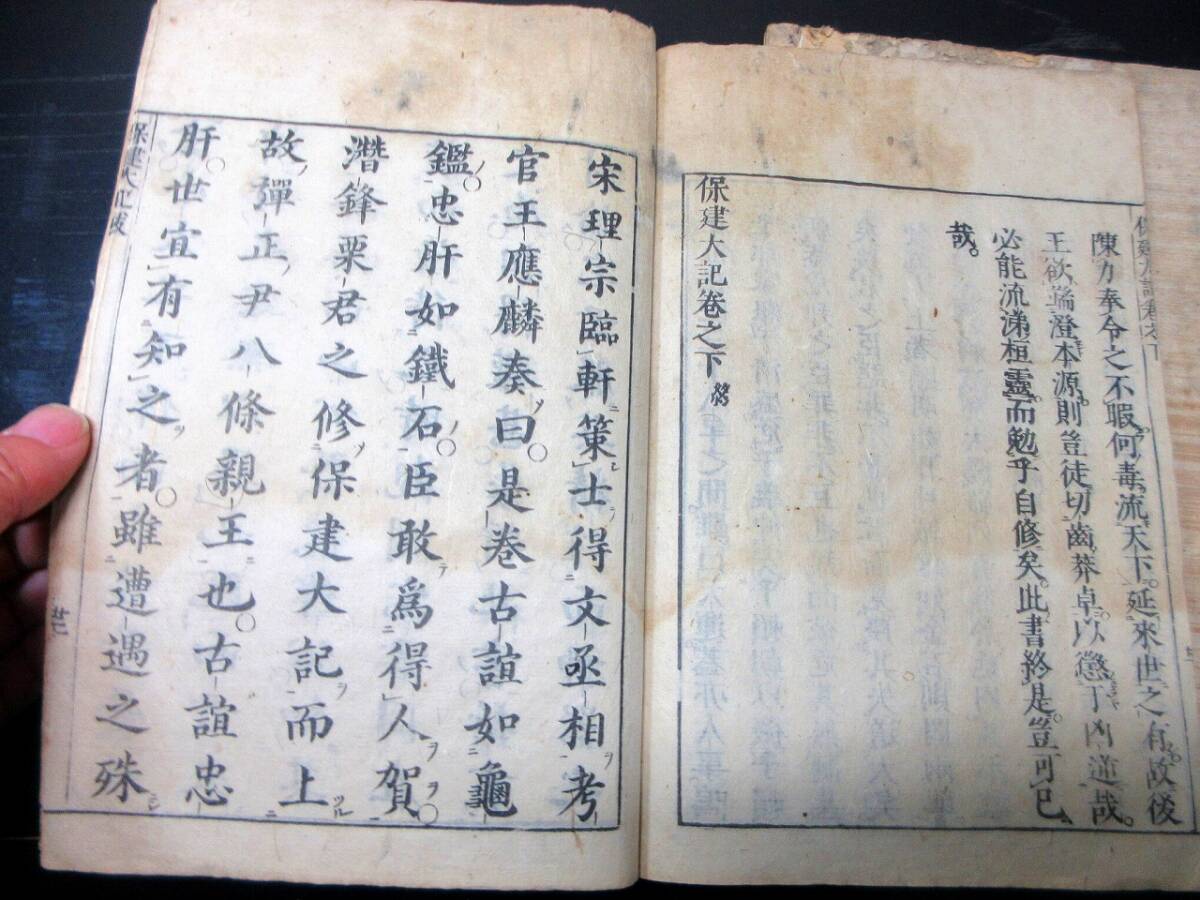 陳力奉令之不暇何毒流天下。延來世之有。故後
王欲端澄本源。則豈徒切齒莽卓。以懲于凶逆哉。
必能流涕桓靈。而勉乎自修矣。此書終是。豈可已
哉。
保建大記卷之下 終
宋理宗臨軒策士得文丞相考
官王應麟奏曰。是卷古誼如龜
鑑。忠肝如鐵石。臣敢爲得人賀。
潛鋒栗君之修保建大記而上
故彈正尹八條親王也。古誼忠
肝。世宜有知之者。雖遭遇之殊
保建大記跋